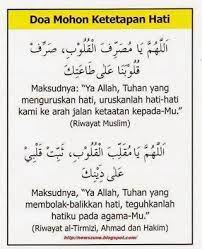 Doa Mohon Ketetapan Hati
اَللَّهُمَّ يَا مُصَرِّفَ الْقُلُوْبِ، صَرِّفْ
قُلُوْبَنَا عَلَى طَاعَتِكَ
Maksudnya: "Ya Allah, Tuhan yang
menguruskan hati, uruskanlah hati-hati
kami ke arah jalan ketaatan kepada-Mu."
(Riwayat Muslim)
اَللَّهُمَّ يَا مُقَلِّبَ الْقُلُوْبِ، ثَبِّتْ قَلْبِيْ
عَلَى دِيْنِكَ
Maksudnya, "Ya Allah, Tuhan yang
membolak-balikkan hati, teguhkanlah
hatiku pada agama-Mu."
(Riwayat al-Tirmizi, Ahmad dan Hakim)